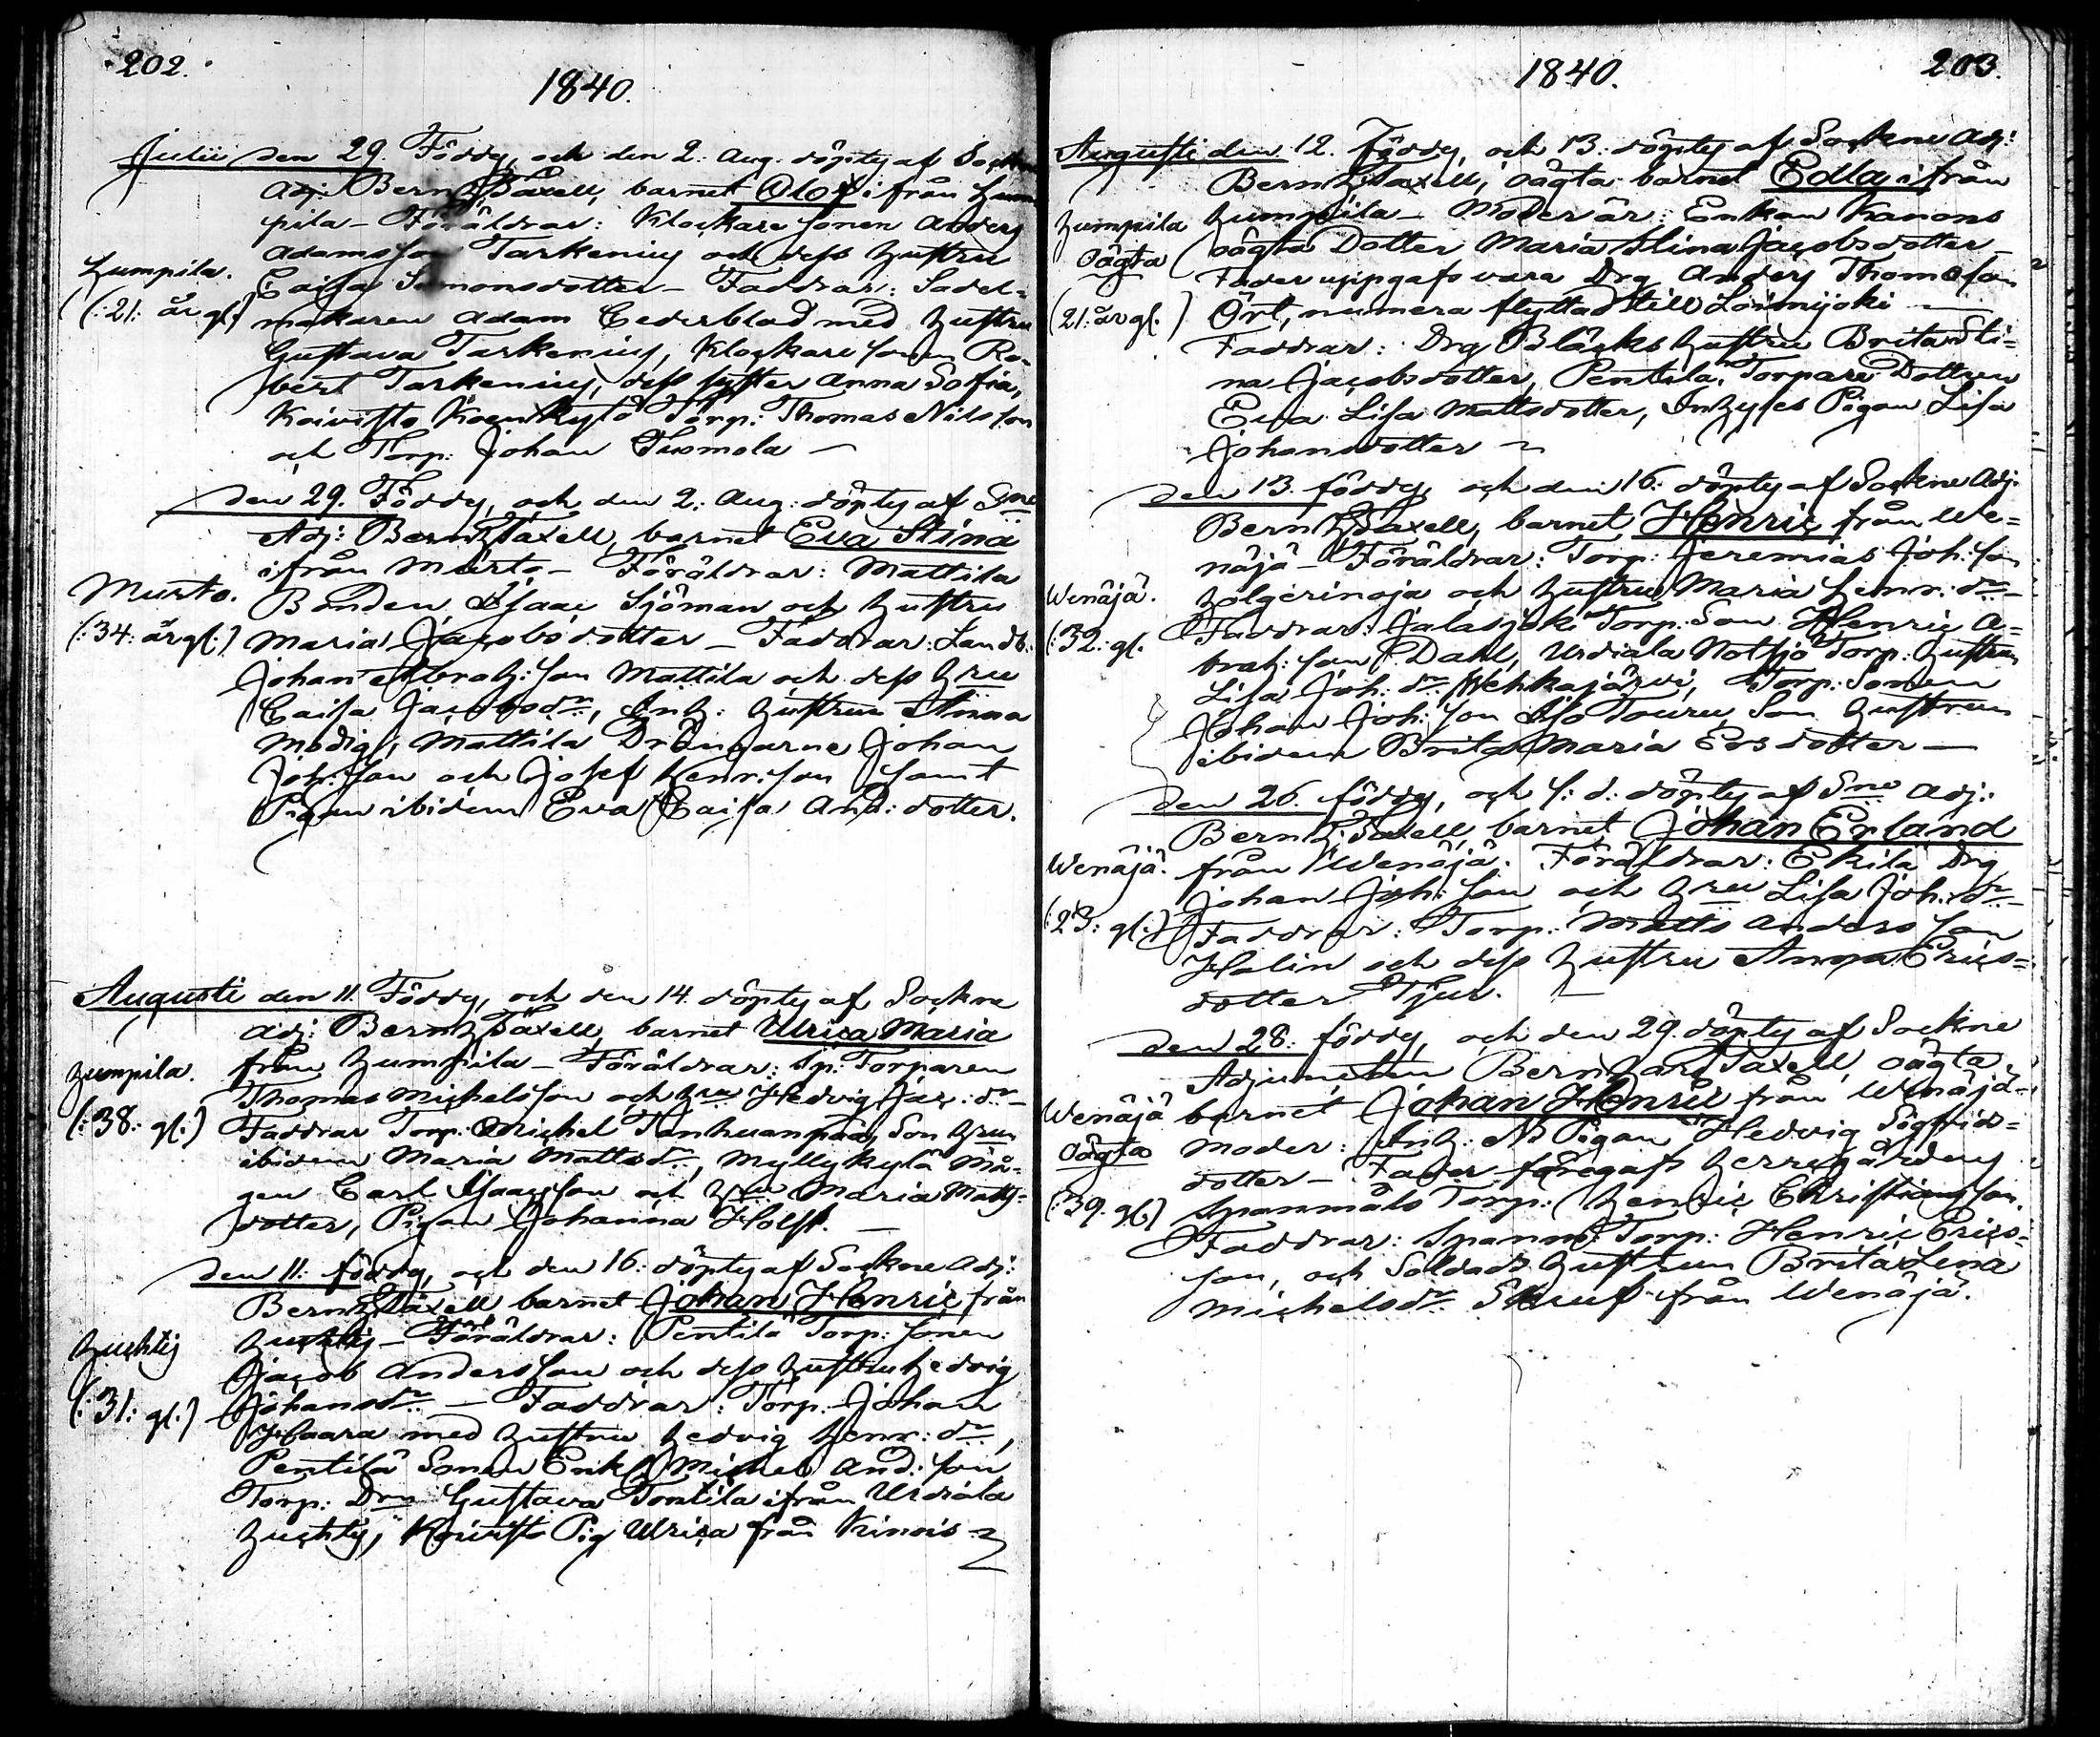 202.
1840.
Julii den 29. Föddes, och den 2. Aug. döptes af Sockne
Adj: Bernh: Taxell, barnet Olof ifrån Hum
pila – Föräldrar: Klockare sonen Anders
Adamsson Tarkenius och dess hustru
Humpila.
Caisa Simonsdotter – Faddrar: Sadel=
(:21: år gl:)
makaren Adam Cederblad med hustru
Gustava Tarkenius, Klockare sonen Ro=
bert Tarkenius, dess syster Anna Sofia,
Koivisto Torp: Thomas Nilsson
och Torp: Johan Tuomola –
den 29. Föddes, och den 2. Aug: döptes af Sne
Adj: Bernh: Taxell, barnet Eva Stina
ifrån Murto – Föräldrar: Mattila
Murto.
Bonden Isaac Sjöman och hustru
(:34: år gl:)
Maria Jacobsdotter – Faddrar: Landb:
Johan Abrah: son Mattila och dess hru
Caisa Jacobsdr, Inh: hustrun Anna
Modig, Mattila Drängarne Johan
Joh: son och Josef Henricson samt
Pigan ibidem Eva Caisa And: dotter.
Augusti den 11. Föddes, och den 14. döptes af Sockne
Adj: Bernh: Taxell, barnet Ulrica Maria
Humpila.
från Humpila – Föräldrar: Sp: Torparen
Thomas Michelsson och hru Hedvig Jac: dr –
(:38: gl:)
Faddrar Torp: Michel Tanhuanpää, Son hrun
ibidem Maria Mattsdr, Myllykylä Må=
gen Carl Isaacsson och hru Maria Matts=
dotter, Pigan Johanna Holst. –
den 11: föddes, och den 16: döptes af Sockne Adj:
Bernh: Taxell barnet Johan Henric från
Huchtis
Huchtis – Föräldrar: Pentilä Torp: sonen
Jacob Andersson och dess hustru Hedvig
(:31: gl:)
Johansdr – Faddrar: Torp: Johan
Haara med hustru Hedvig Henr: dr,
Pentilä Sonen Enkl: Michel And: son
Torp: Drn Gustava Tontila ifrån Urdiala
Huchtis, Koivisto Pig Ulrica från Kinois –
1840.
203.
Augusti den 12. Föddes, och 13: döptes af Sockne Adj:
Bernh: Taxell, oägta barnet Edla ifrån
Humpila
Humpila – Moder är: Enkan Kanons
oägta
oägta Dotter Maria Stina Jacobsdotter –
Fader uppgafs vara Drg Anders Thomasson
(21: år gl:)
Ört, numera flyttad till Loimijoki –
Faddrar: Drg Bläcks hustru Brita Sti=
na Jacobsdotter, Pentilä Torpare Dottren
Eva Lisa Mattsdotter, Inhyses Pigan Lisa
Johansdotter –
den 13. föddes och den 16: döptes af Sockne Adj:
Bernh: Taxell, barnet Henric från We=
näjä – Föräldrar: Torp: Jeremias Joh: son
Wenäjä.
Holgerinoja och hustru Maria Henr: dr –
(:32: gl.
Faddrar: Jalasjoki Torp: Son Henric A=
brah: son Dahl, Urdiala Notsjö Torp: hustrun
Lisa Joh: dr Wehkajärvi, Torp: Sonen
Johan Joh: son Iso Touru, Son hustrun
ibidem Brita Maria Ersdotter –
den 26. föddes, och s: d: döptes af Sne Adj:
Bernh: Taxell barnet Johan Erland
Wenäjä.
från Wenäjä. Föräldrar: Ekilä Drg
Johan Joh: son och hru Lisa Joh: dr –
(:23: gl:)
Faddrar: Torp: Matts Andersson
Halin och dess hustru Anna Erics=
dotter Tjur. –
den 28: föddes, och den 29. döptes af Sockne
Adjuncten Bernhard Taxell, oägta
Wenäjä
barnet Johan Henric från Wenäjä –
oägta
Moder: Inh: Pigan Hedvig Sigfrids=
dotter – Fader föregafs herregårdens
(:39. gl:)
Spanmåls Torp: Henric Christiansson.
Faddrar: Spanm: Torp: Henric Erics=
son, och Soldads hustrun Brita Lena
Michelsdr Skruf från Wenäjä.